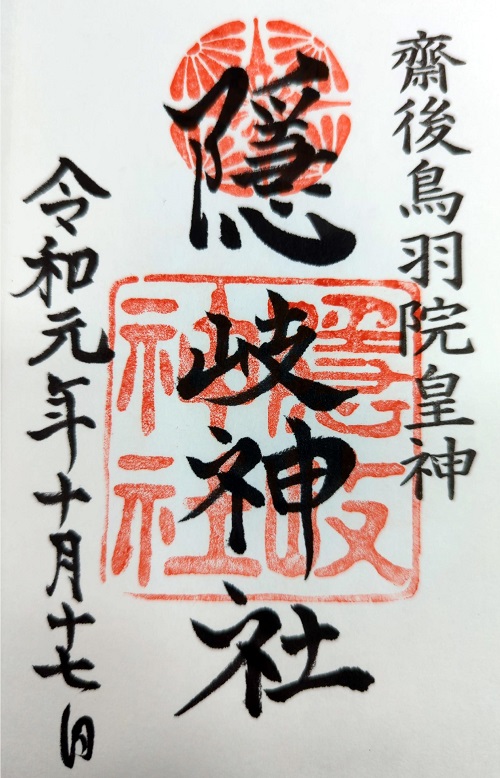 齋後鳥羽院皇神
隠岐神社
隠岐
神社
令和元年十月十七日